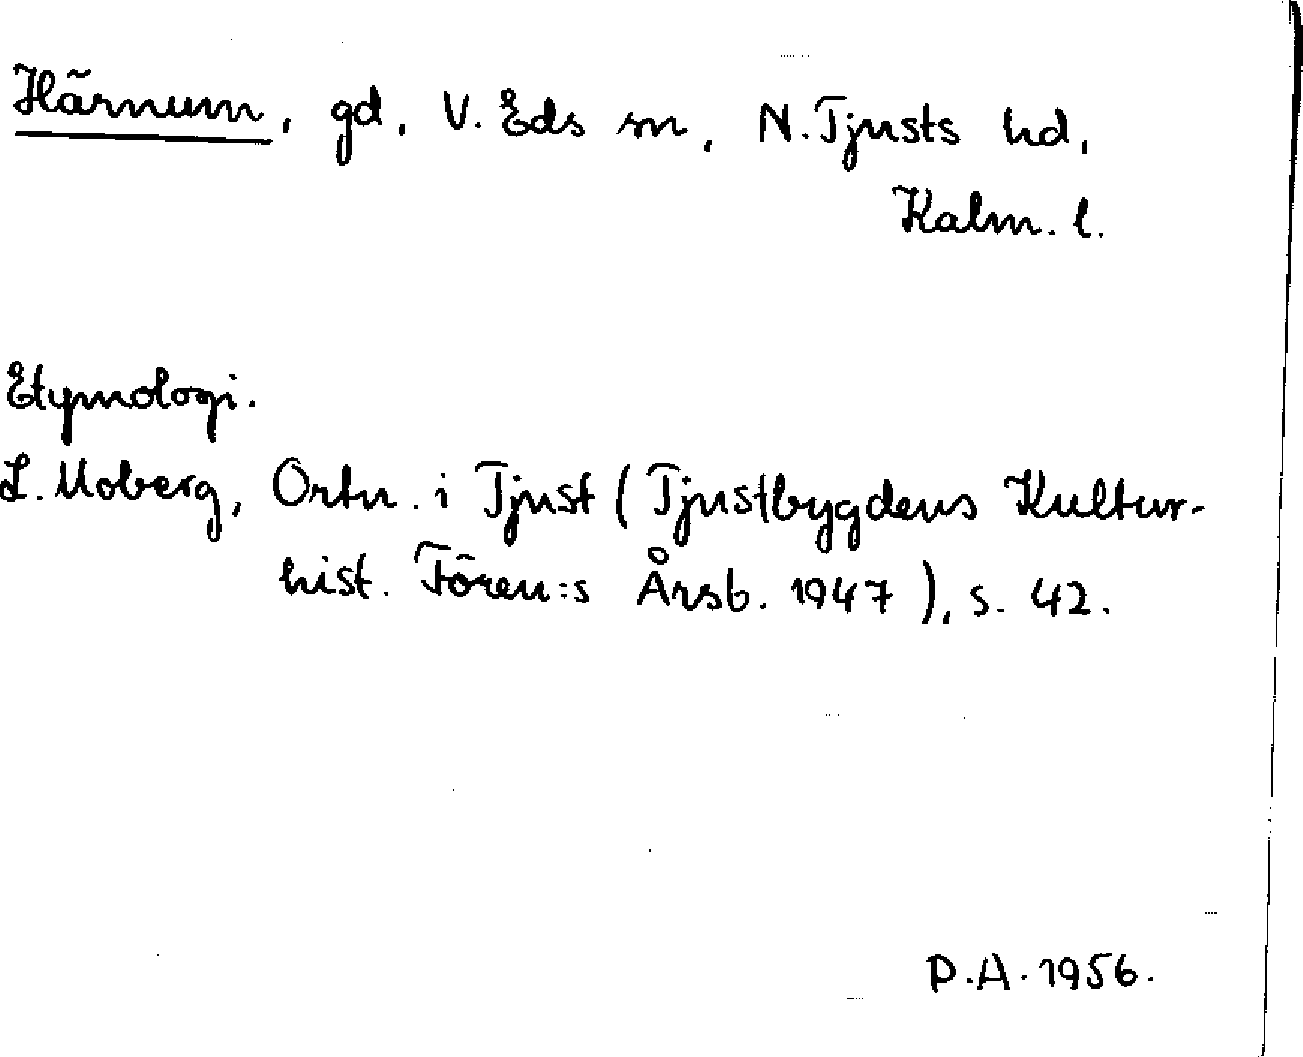 Härnum, gd, V. Eds sn, N. Tjusts hd,
Kalm. l.
Etymologi.
L. Moberg, Ortn. i Tjust (Tjustbygdens Kultur-
hist. Fören:s Årsb. 1947), s. 42.
P.A. 1956.